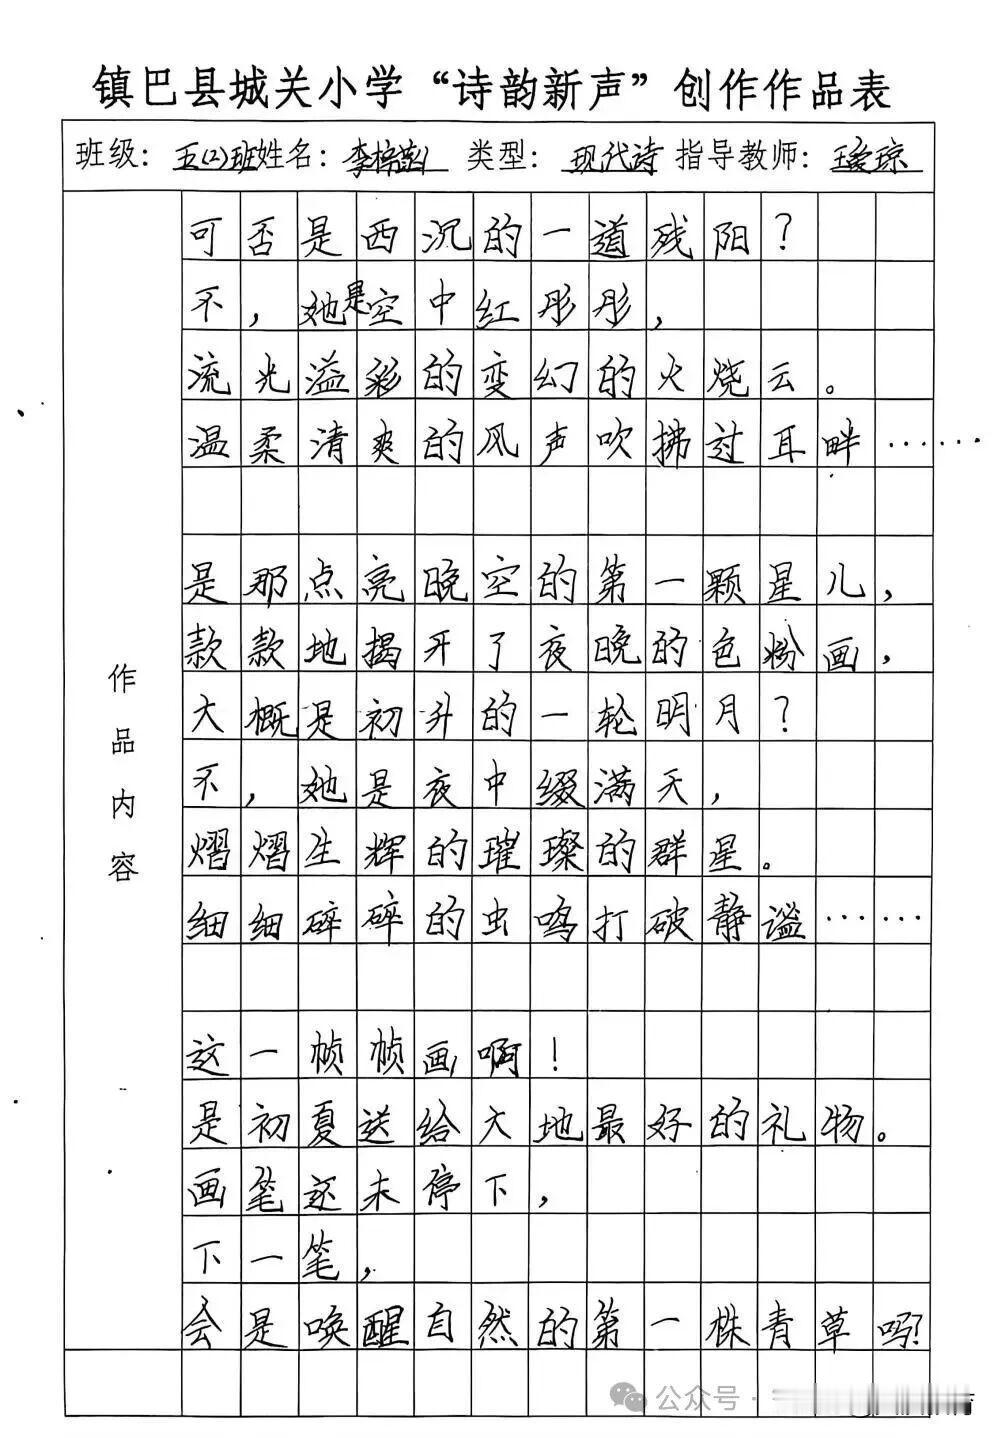 镇巴县城关小学“诗韵新声”创作作品表
班级：五(2)班 姓名：李梓 类型：现代诗 指导教师：王爱琼
可否是西沉的一道残阳？
不，她是空中红彤彤，
流光溢彩的变幻的火烧云。
温柔清爽的风声吹拂过耳畔……
是那点亮晚空的第一颗星儿，
款款地揭开了夜晚的色粉画，
大概是初升的一轮明月？
不，她是夜中缀满天，
熠熠生辉的璀璨的群星。
细细碎碎的虫鸣打破静谧……
这一帧帧画啊！
是初夏送给大地最好的礼物。
画笔还未停下，
下一笔，
会是唤醒自然的第一株青草吗？
作品内容
公众号·